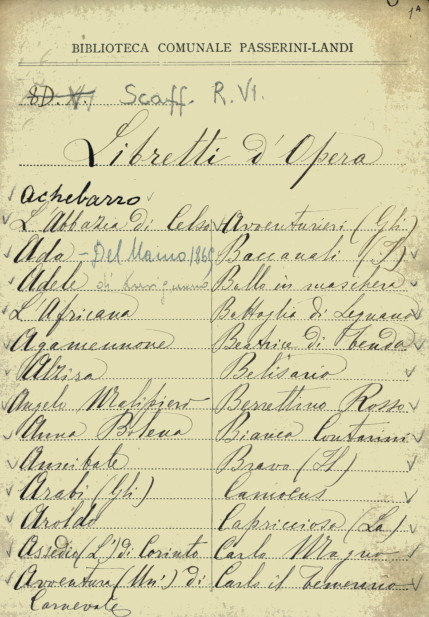 1ª
BIBLIOTECA COMUNALE PASSERINI-LANDI
Scaff. R. VI.
Libretti d'Opera
Achebarro
L'Abbazia di Celso
Ada - Del Maino 1860
Adele di
L'Africana
Agamennone
Alzira
Angelo Malipiero
Anna Bolena
Annibale
Arabi (Gli)
Aroldo
Assedio (L') di Corinto
Avventura (Un') di
Carnevale
Avventurieri (Gli)
Baccanali (I)
Ballo in maschera
Battaglia di Legnano
Beatrice di Tenda
Belisario
Berrettino Rosso
Bianca Contarini
Bravo (Il)
Camoens
Capricciosa (La)
Carlo Magno
Carlo il Temerario